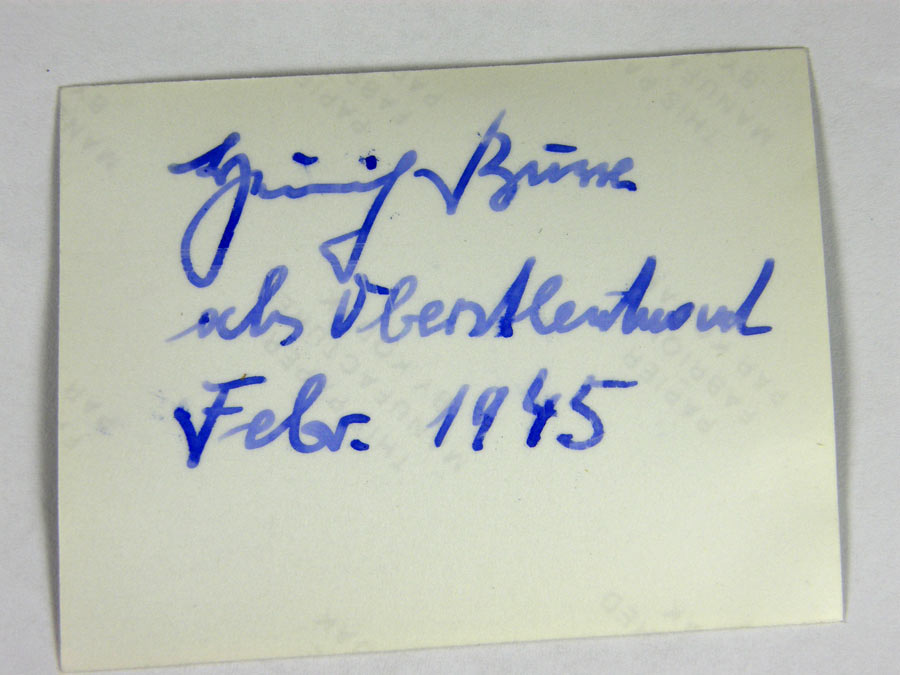 Heinrich Busse
als Oberstleutnant
Febr. 1945